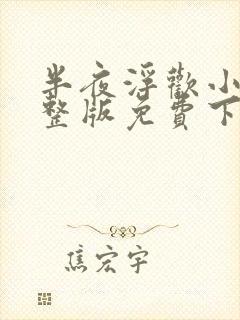 半夜浮歡小
整版免費下
焦宏宇